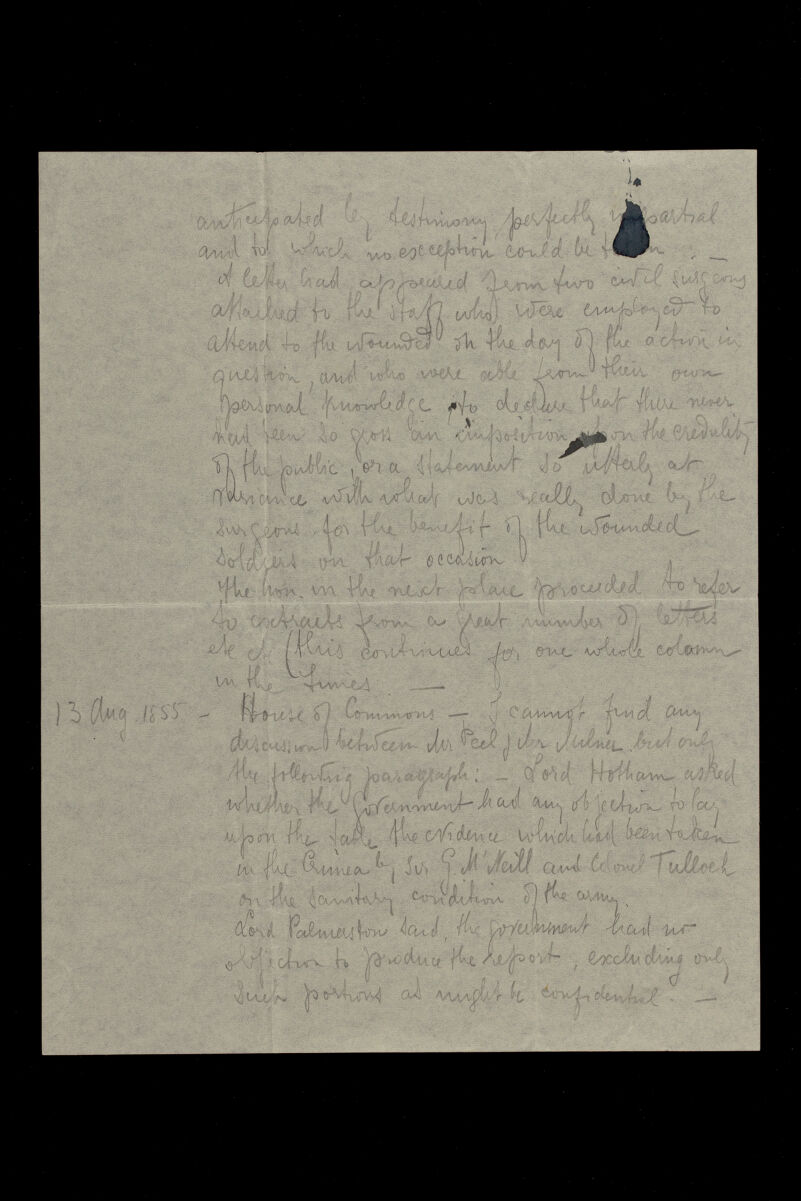 anticipated by testimony perfectly impartial
and to which no exception could be taken : —
A letter had appeared from two civil surgeons
attached to the staff who were employed to
attend to the wounded on the day of the action in
question, and who were able from their own
personal knowledge to declare that there never
had been so gross an imposition upon the credulity
of the public, or a statement so utterly at
variance with what was really done by the
surgeons for the benefit of the wounded
soldiers on that occasion
The hon. in the next place proceeded to refer
to extracts from a great number of letters
etc (this continues for one whole column
in the Times —
13 Aug 1855 - House of Commons — I cannot find any
discussion between Mr Peel & Mr Milnes but only
the following paragraph: - Lord Hotham asked
whether the Government had any objection to lay
upon the table the evidence which had been taken
in the Crimea by Sir G M'Neill and Colonel Tulloch
on the sanitary condition of the army.
Lord Palmerston said, the government had no
objection to produce the report, excluding only
such portions as might be confidential. —